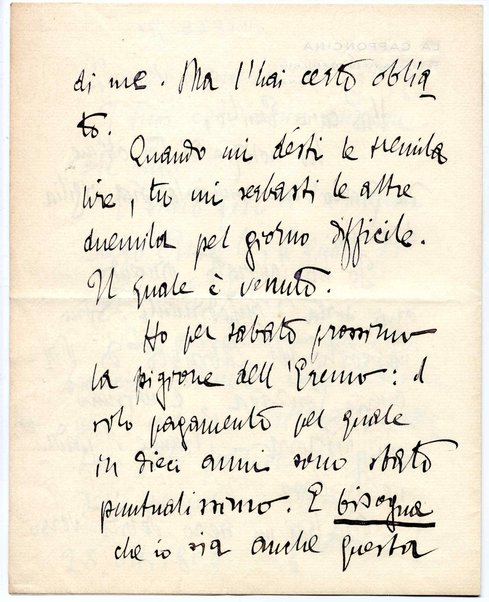 di me. Ma l'hai certo oblia
to.
Quando mi désti le tremila
lire, tu mi serbasti le altre
duemila pel giorno difficile.
Il quale è venuto.
Ho per sabato prossimo
la pigione dell'Eremo: il
solo pagamento pel quale
in dieci anni sono stato
puntualissimo. E bisogna
che io sia anche questa
LA CAPPONCINA